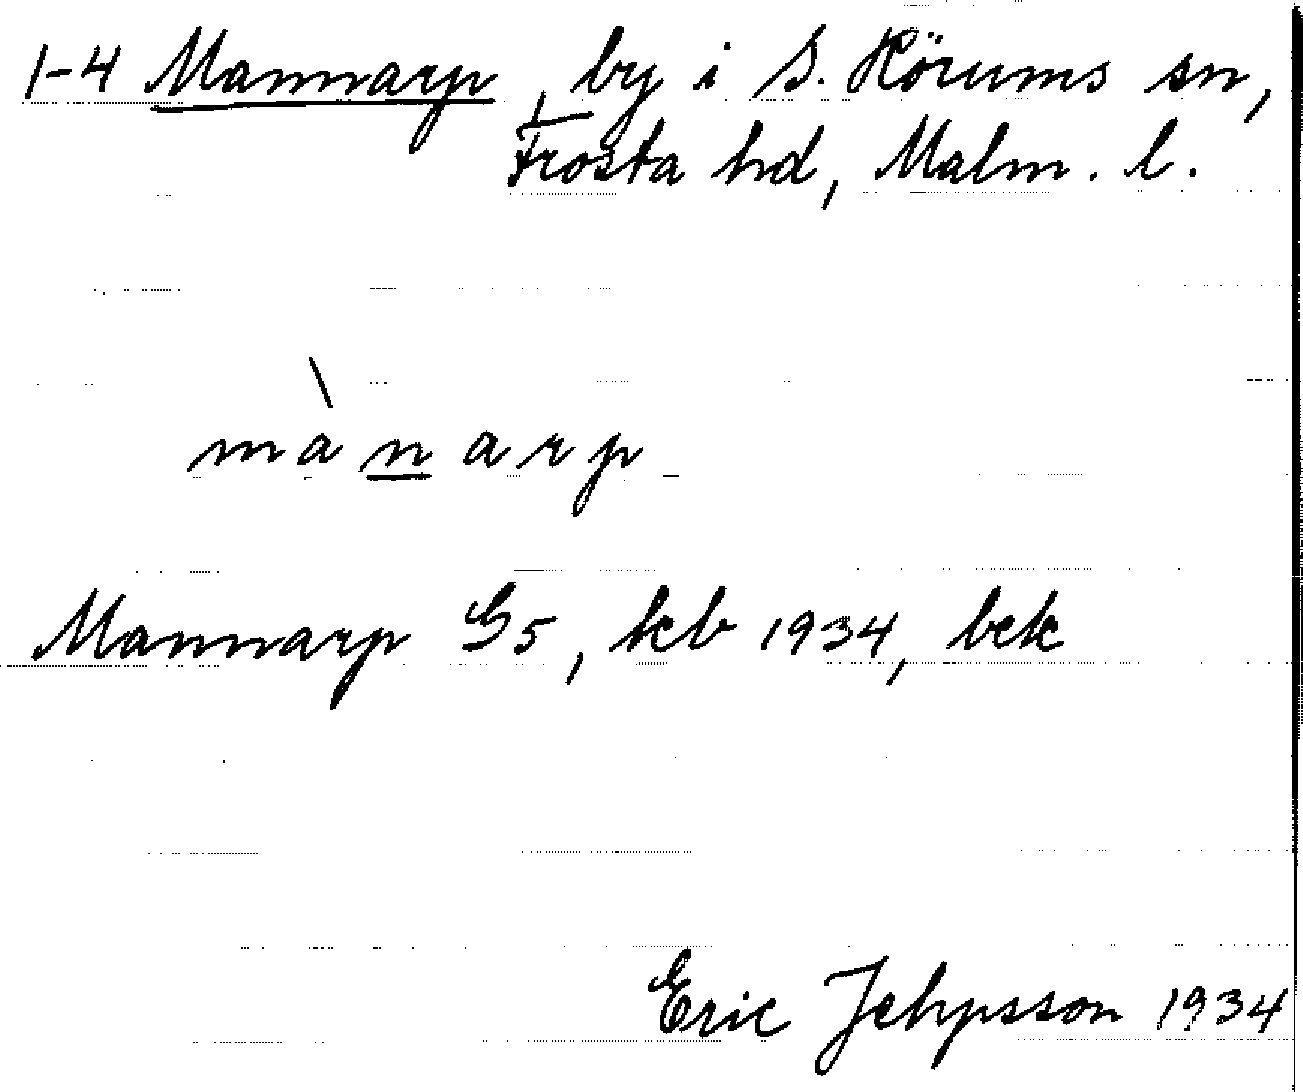 1-4 Mannarp, by i S. Hörums sn,
Frosta hd, Malm. l.
mànarp
Mannarp G5, kcb 1934, bek
Eric Jehpsson 1934